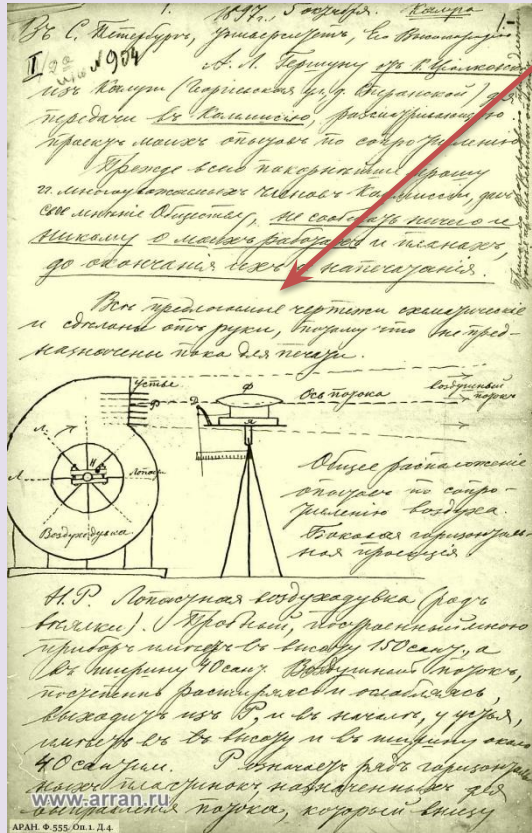 1.
1897 г. 5 октября. Калуга
1.
Въ С. Петербургъ, университетъ, Его Высокородію
II № 904
А. Л. Гершуну отъ К. Ціолковскаго
изъ Калуги (Георгіевская ул, д. Сперанской) для
передачи въ Коммиссію, разсматривающую
моихъ опытовъ по сопротивленію
Прежде всего покорнѣйше прошу
и многоуважаемыхъ членовъ Коммиссіи, дать
свое мнѣніе Обществу, не сообщать ничего и
никому о моихъ работахъ и планахъ,
до окончанія ихъ и напечатанія.
Всѣ предложенные чертежи схематическіе
и сдѣланы отъ руки, потому что не пред-
назначены пока для печати.
Устье
Р
Л
Л
Н
Лопасти
Воздуходувка
Д
Ф
Я
Ось потока
воздушный
потокъ
Общее расположеніе
опытовъ по сопро-
тивленію воздуха.
Боковая горизонталь-
ная проекція
Н.Р. Лопастная воздуходувка (родъ
вѣялки). Пробный, построенный мною
приборъ имѣетъ въ высоту 150 сант., а
въ ширину 40 сант. Воздушный потокъ,
постепенно расширяясь и ослабляясь,
выходитъ изъ Р, и въ началѣ, у устья,
имѣетъ въ высоту и въ ширину около
40 сантим. Р означаетъ рядъ горизонталь-
ныхъ пластинокъ, назначенныхъ для
выправленія потока, который внизу
www.arran.ru
АРАН. Ф.555. Оп.1. Д.4.